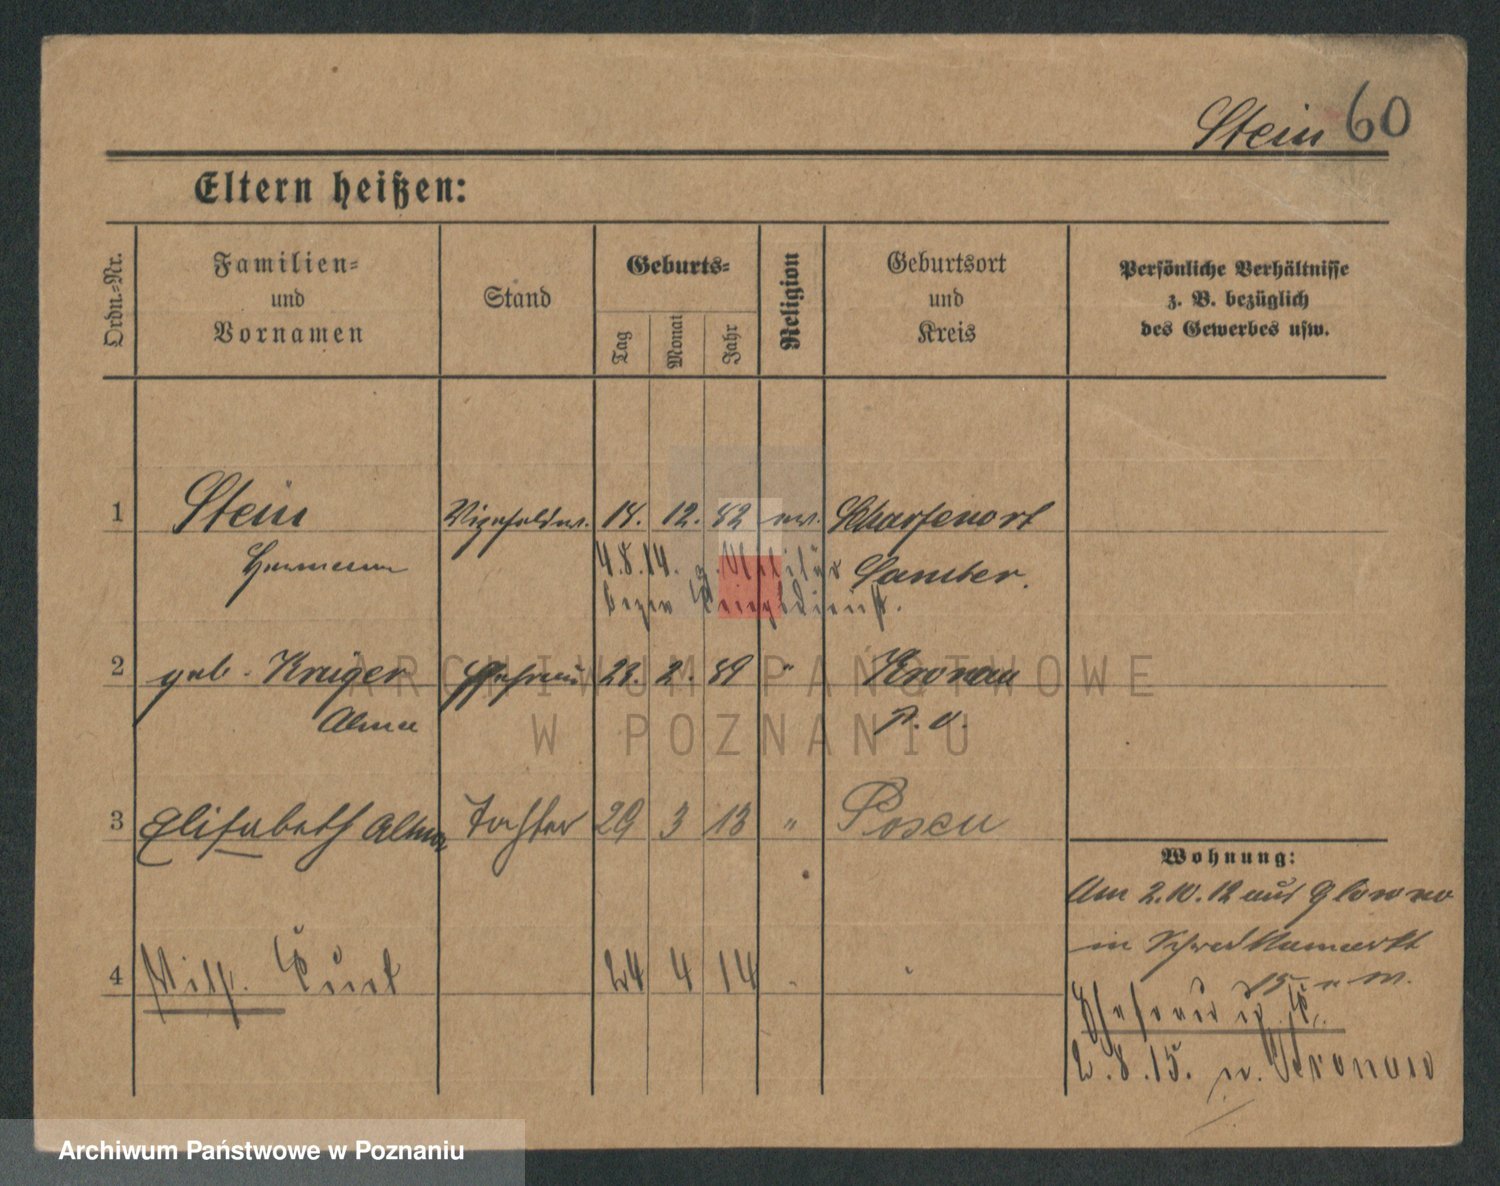 Stein 60
Eltern heißen:
Ordn.-Nr.
Familien-
und
Vornamen
Stand
Geburts-
Tag
Monat
Jahr
Religion
Geburtsort
und
Kreis
Persönliche Verhältnisse
z. B. bezüglich
des Gewerbes usw.
1 Stein Vizefeldw. 14. 12. 82 ev. Scharfenort
Hermann Samter.
4.8.14. z. Militär
bezw Kriegsdienst.
2 geb. Krüger Ehefrau 23. 2. 89 " Kronau
Alma
3 Elisabeth Alma Tochter 29 3 13 " Posen
4 Wilh. Kurt 24 4 14
Wohnung:
Am 2.10.12 aus Glowno
in
15
Ehefrau
2.8.15. n. Wronow
ARCHIWUM PAŃSTWOWE
W POZNANIU
Archiwum Państwowe w Poznaniu